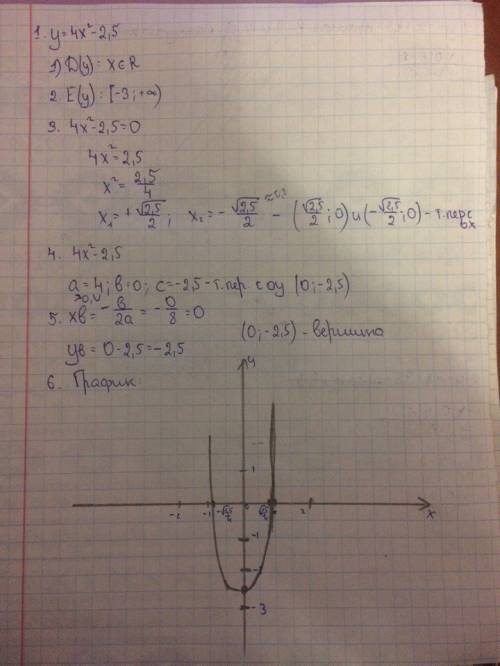 1. y=4x²-2,5
1) D(y): x∈R
2. E(y): [-3; +∞)
3. 4x²-2,5=0
4x²=2,5
x²=2,5/4
x₁=+√2,5/2; x₂=-√2,5/2 - (√2,5/2; 0) и (-√2,5/2; 0) - т. перс ox
4. 4x²-2,5
a=4; в=0; c=-2,5 - т. пер. с oy (0; -2,5)
5. xв=-в/2a=-0/8=0
yв=0-2,5=-2,5
(0; -2,5) - вершина
6. График:
y
1
-2 -1 -√2,5/2 0 √2,5/2 2 x
-1
-3